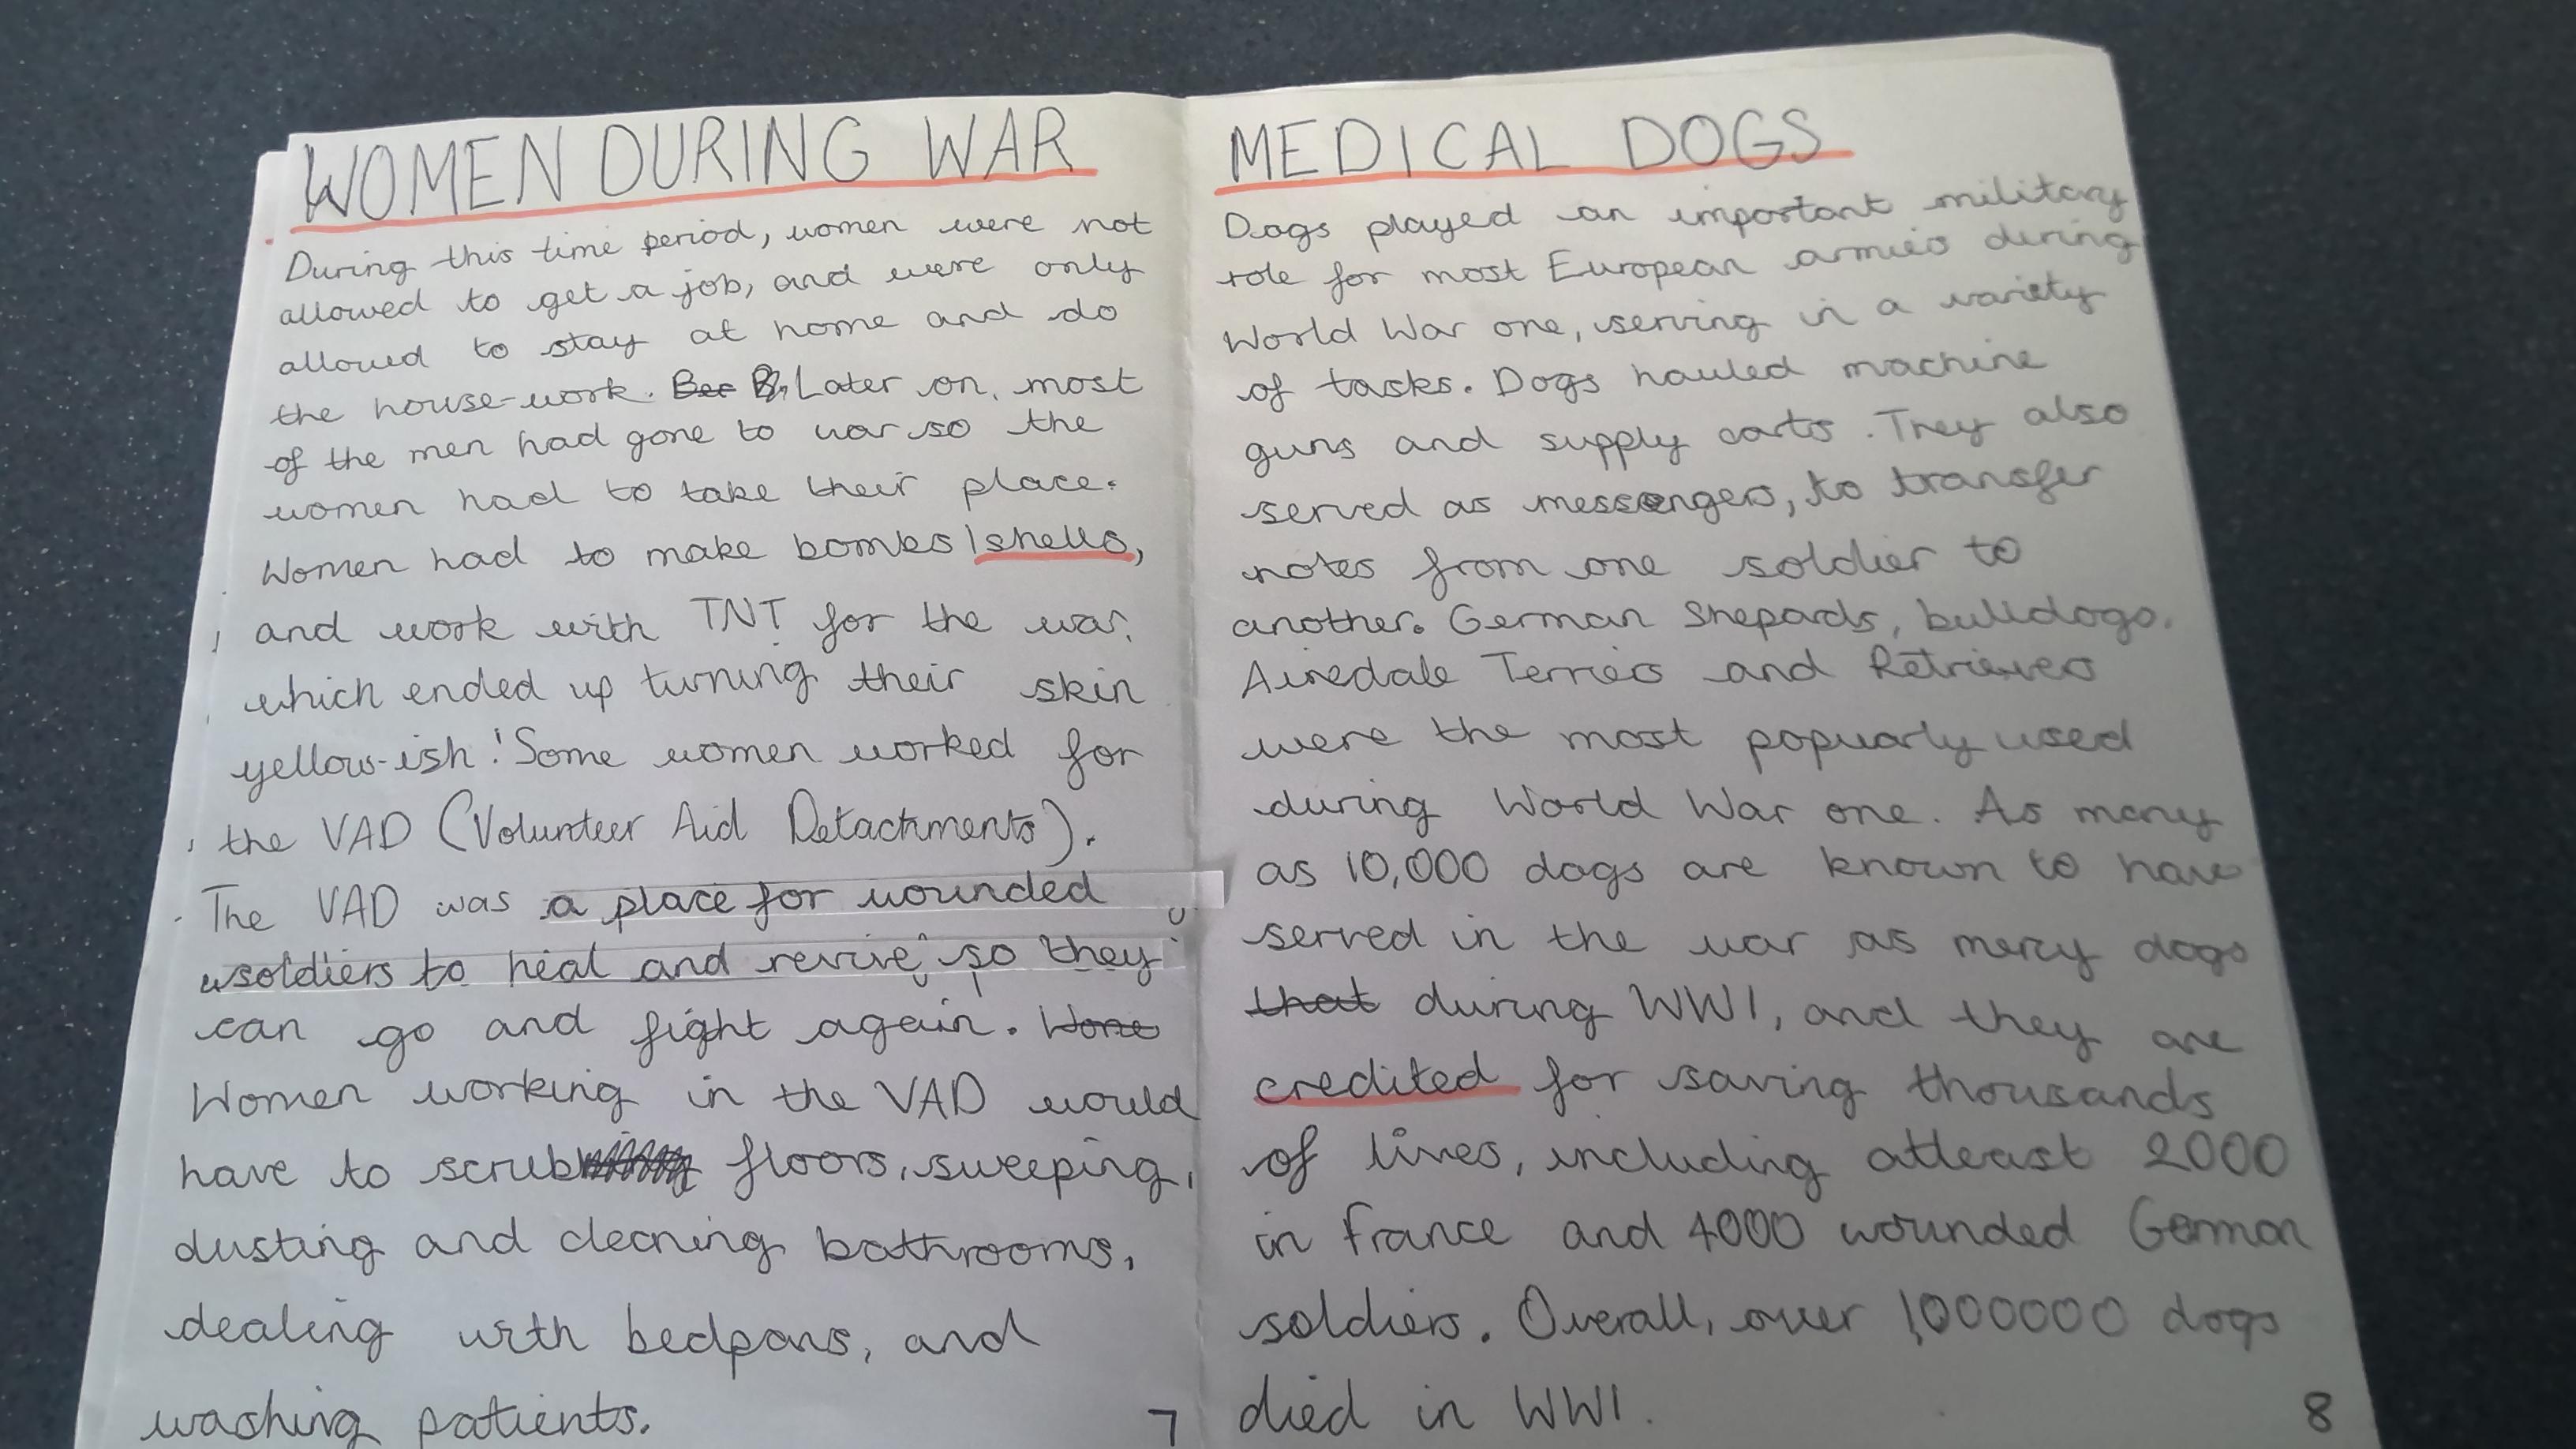 WOMEN DURING WAR
During this time period, women were not
allowed to get a job, and were only
allowed to stay at home and do
the house-work. Bec B, Later on, most
of the men had gone to war so the
women had to take their place.
Women had to make bombs/shells,
and work with TNT for the war,
which ended up turning their skin
yellow-ish! Some women worked for
the VAD (Volunteer Aid Detachments).
The VAD was a place for wounded
soldiers to heal and revive, so they
can go and fight again. Wone
Women working in the VAD would
have to scrub floors, sweeping,
dusting and cleaning bathrooms,
dealing with bedpans, and
washing patients.
7
MEDICAL DOGS
Dogs played an important military
role for most European armies during
World War one, serving in a variety
of tasks. Dogs hauled machine
guns and supply carts. They also
served as messengers, to transfer
notes from one soldier to
another. German Shepards, bulldogs,
Airedale Terriers and Retrievers
were the most popuarly used
during World War one. As many
as 10,000 dogs are known to have
served in the war as mercy dogs
that during WW1, and they are
credited for saving thousands
of lives, including atleast 2000
in france and 4000 wounded German
soldiers. Overall, over 1,000000 dogs
died in WW1.
8